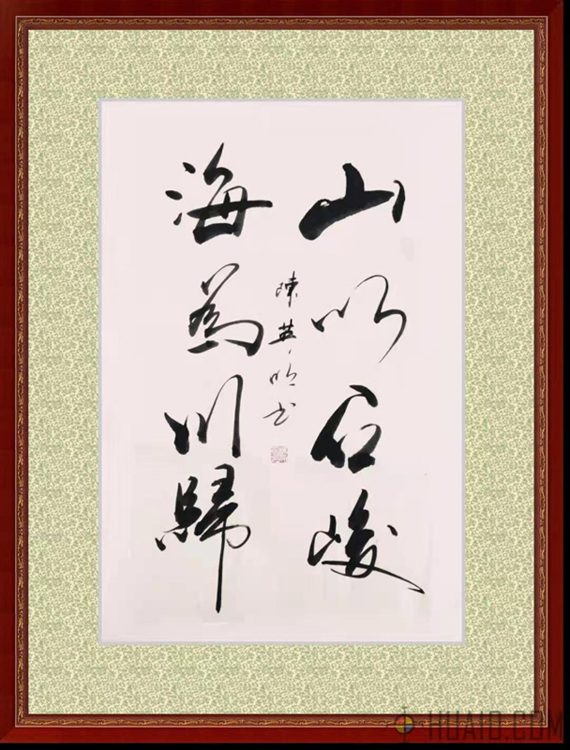 山以石峻
海为川歸
陳英明书
HUAID.COM